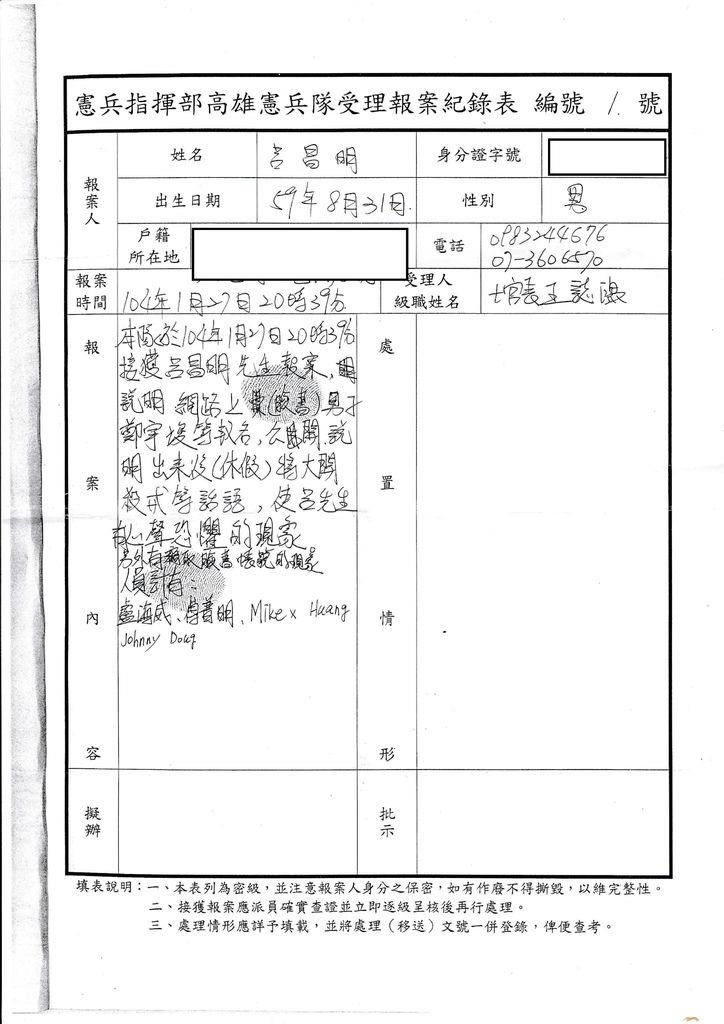 憲兵指揮部高雄憲兵隊受理報案紀錄表 編號 1. 號
報案人
姓名 呂昌明 身分證字號
出生日期 59年8月31日. 性別 男
戶籍所在地 電話 0983244676
07-3606570
報案時間 104年1月27日20時39分 受理人級職姓名 士官長王
報案內容
本隊於104年1月27日20時39分
接獲呂昌明先生報案,
說明網路上(臉書)男子
鄭宇 等報名,公開說
明出來後(休假)將大開
殺戒等話語,使呂先生
有心聲恐懼的現象
另外有 臉書帳號的現象
人員計有:
盧海威、 明、Mike x Huang
Johnny Doug
處置情形
擬辦
批示
填表說明:一、本表列為密級,並注意報案人身分之保密,如有作廢不得撕毀,以維完整性。
二、接獲報案應派員確實查證並立即逐級呈核後再行處理。
三、處理情形應詳予填載,並將處理(移送)文號一併登錄,俾便查考。